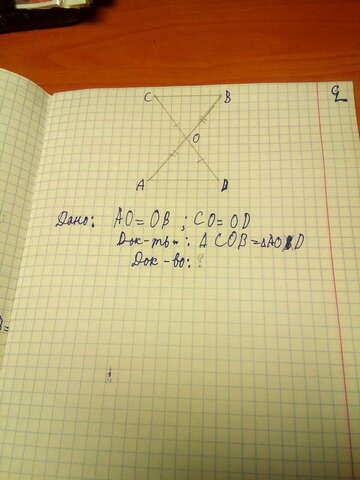 C B
O
A D
Дано: AO=OB ; CO=OD
Док-ть: Δ COB=ΔAOD
Док-во: ?